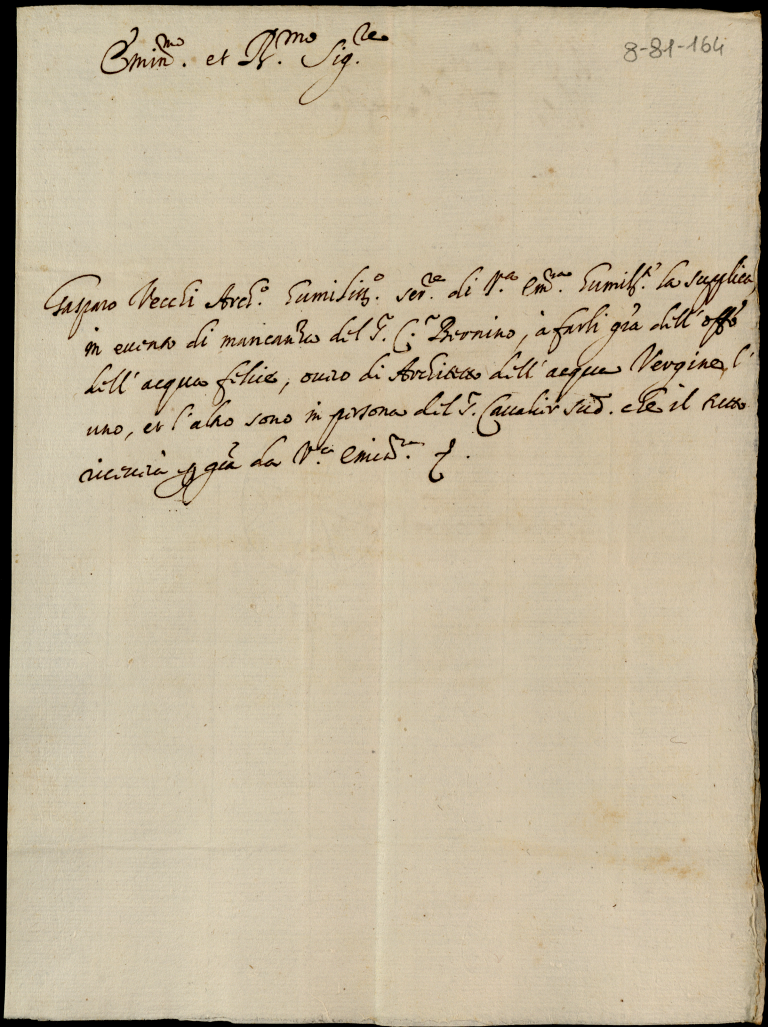 8-81-164
Emin.mo et R.mo Sig.re
Gasparo Vecchi Arch.o humiliss.o ser.re di V.a Em.za humilt.e la supplica,
in evento di mancanza del S.r C.r Bernino, à farli gr̃a dell'offo
dell'acqua felice, overo di Architetto dell'acqua Vergine, l'
uno, et l'altro sono in persona del S.r Cavalier sud. che il tutto
riceverà p gr̃a da V.a Emin.za